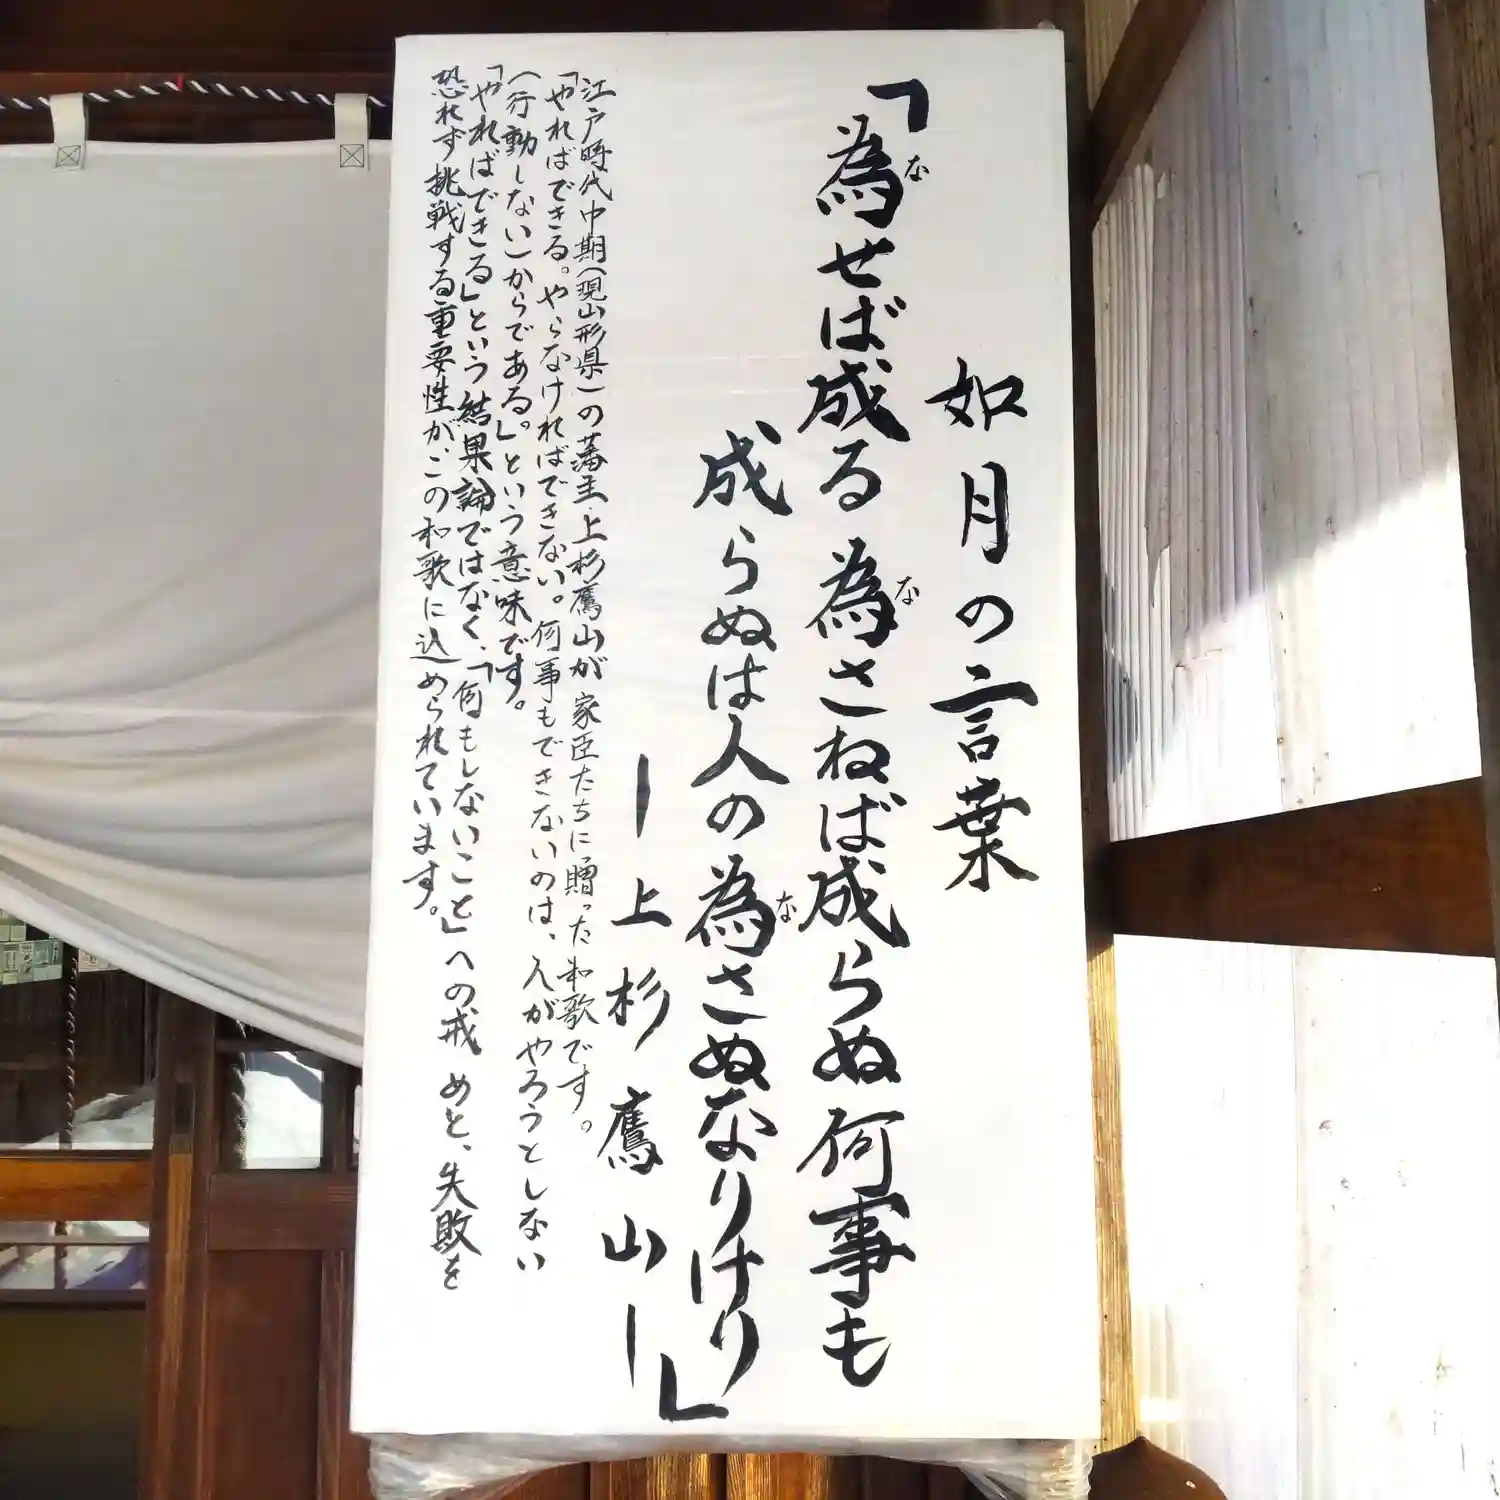 如月の言葉
「為せば成る 為さねば成らぬ 何事も
な
な
成らぬは人の為さぬなりけり」
な
ー上杉鷹山ー
江戸時代中期(現山形県)の藩主・上杉鷹山が家臣たちに贈った和歌です。
「やればできる。やらなければできない。何事もできないのは、人がやろうとしない
(行動しない)からである。」という意味です。
「やればできる」という結果論ではなく、「何もしないこと」への戒めと、失敗を
恐れず挑戦する重要性が、この和歌に込められています。